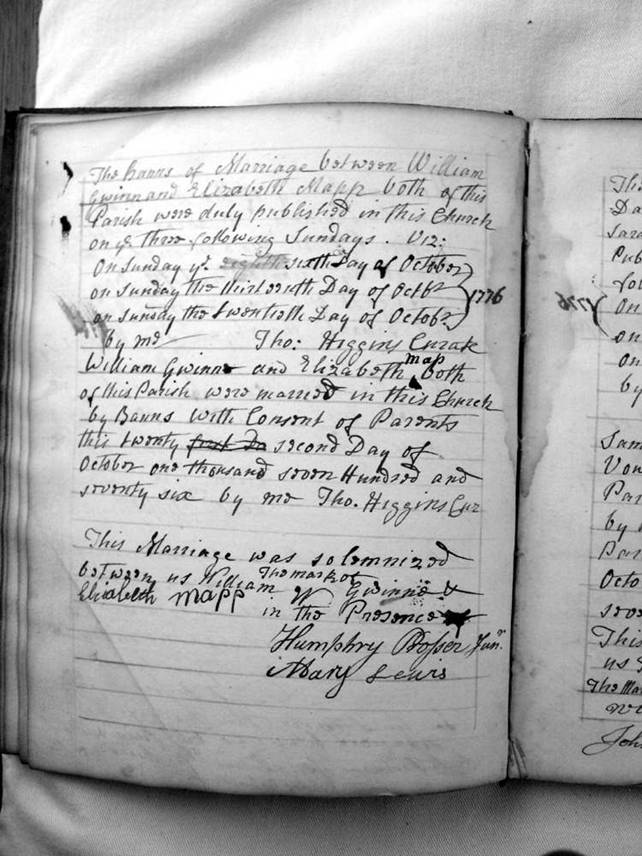 The Banns of Marriage between William
Gwinn and Elizabeth Mapp both of this
Parish were duly published in this Church
on ye three following Sundays. Viz:
On Sunday ye sixth Day of October
on Sunday the thirteenth Day of Octbr
on Sunday the twentieth Day of Octobr
1776
by me Tho: Higgins Curate
map
William Gwinne and Elizabeth both
of this Parish were married in this Church
by Banns with Consent of Parents
this twenty first Da second Day of
October one thousand seven Hundred and
seventy six by me Tho. Higgins Cur
This Marriage was solemnized
between us William The mark of Gwinne &
Elizabeth mapp
in the Presence
Humphry Junr
Mary Lewis
Da
Sara
Pub
on
on
on
by
1776
Sam
Par
by
Octo
seve
This
us
The Mar
John